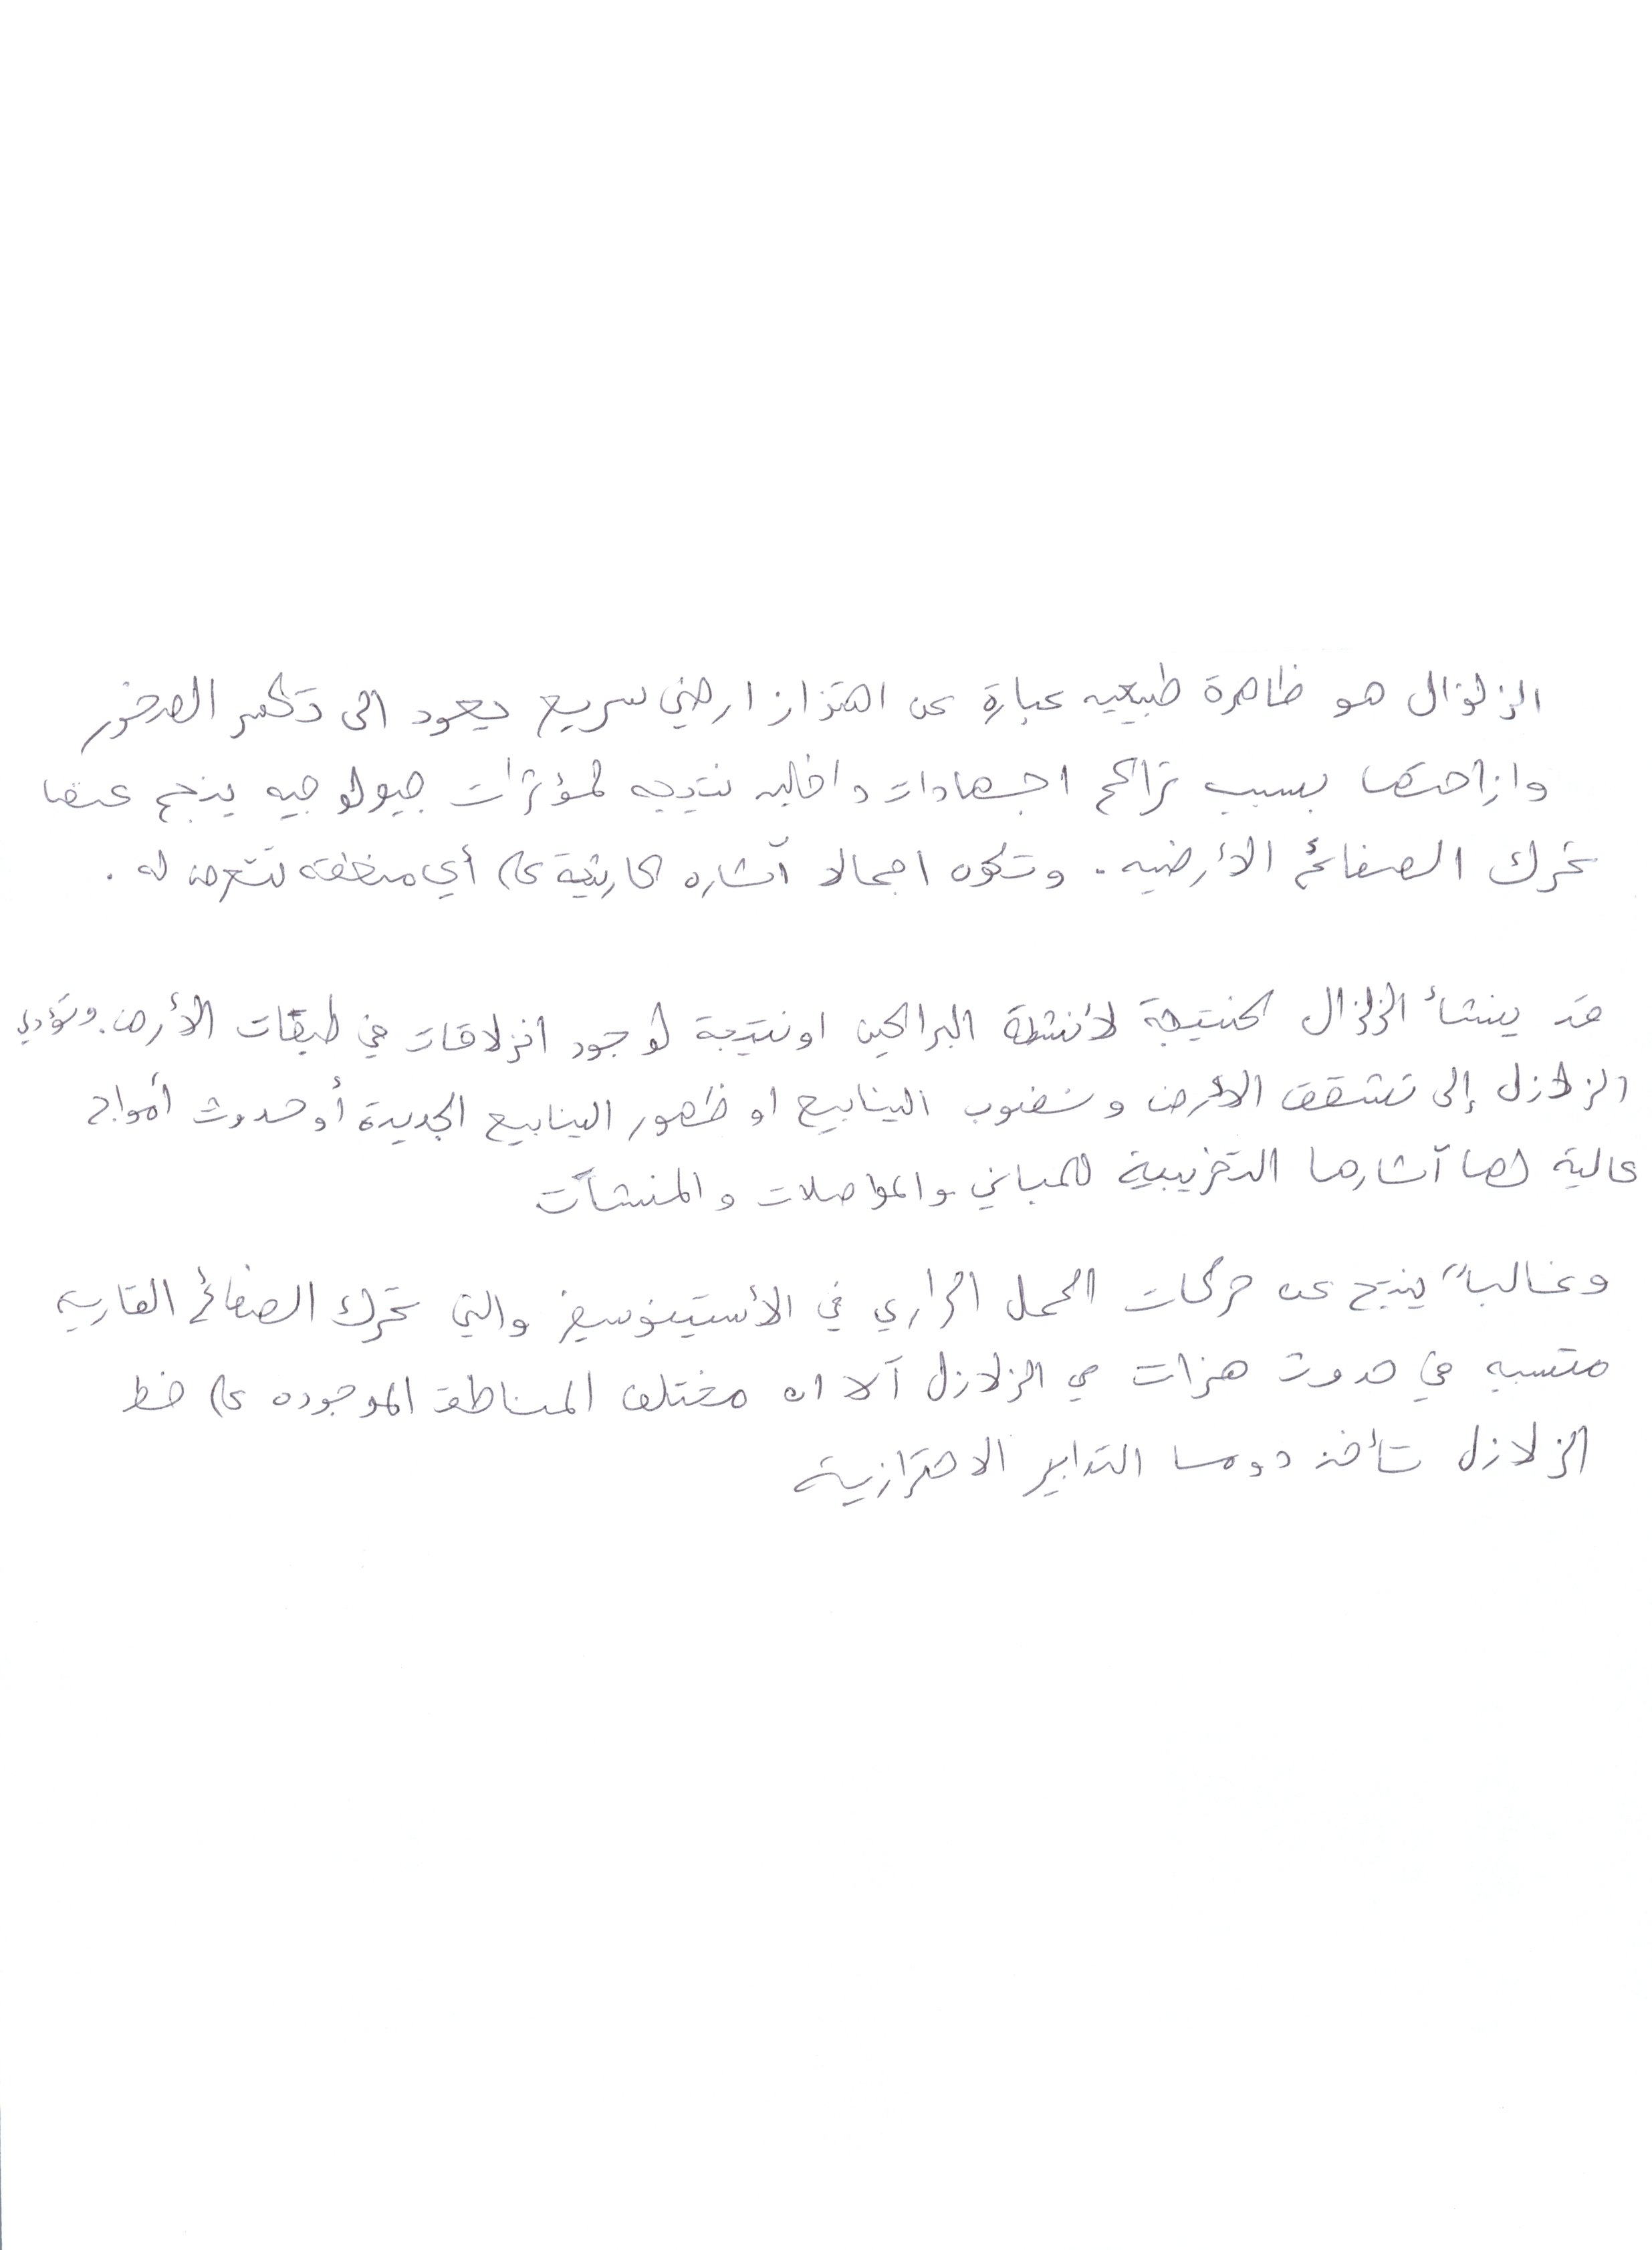 الزلزال هو ظاهرة طبيعيه عبارة عن اهتزاز ارضي سريع يعود الى تكسر الصخور
وازاحتها بسبب تراكم اجهادات داخليه نتيجه لمؤثرات جيولوجيه ينجم عنها
تحرك الصفائح الأرضيه. وتكون اجمالا آثاره كارثية على أي منطقه تتعرض له .
قد ينشأ الزلزال كنتيجة لأنشطة البراكين او نتيجة لوجود انزلاقات في طبقات الأرض. وتؤدي
الزلازل إلى تشقق الأرض ونضوب الينابيع او ظهور الينابيع الجديدة أو حدوث أمواج
عالية لها آثارها التخريبية للمباني والمواصلات والمنشآت
وغالباً ينتج عن حركات الحمل الحراري في الأستينوسفير والتي تحرك الصفائح القاريه
متسببه في حدوث هزات هي الزلازل آلا ان مختلف المناطق الموجوده على خط
الزلازل تأخذ دوما التدابير الاحترازية